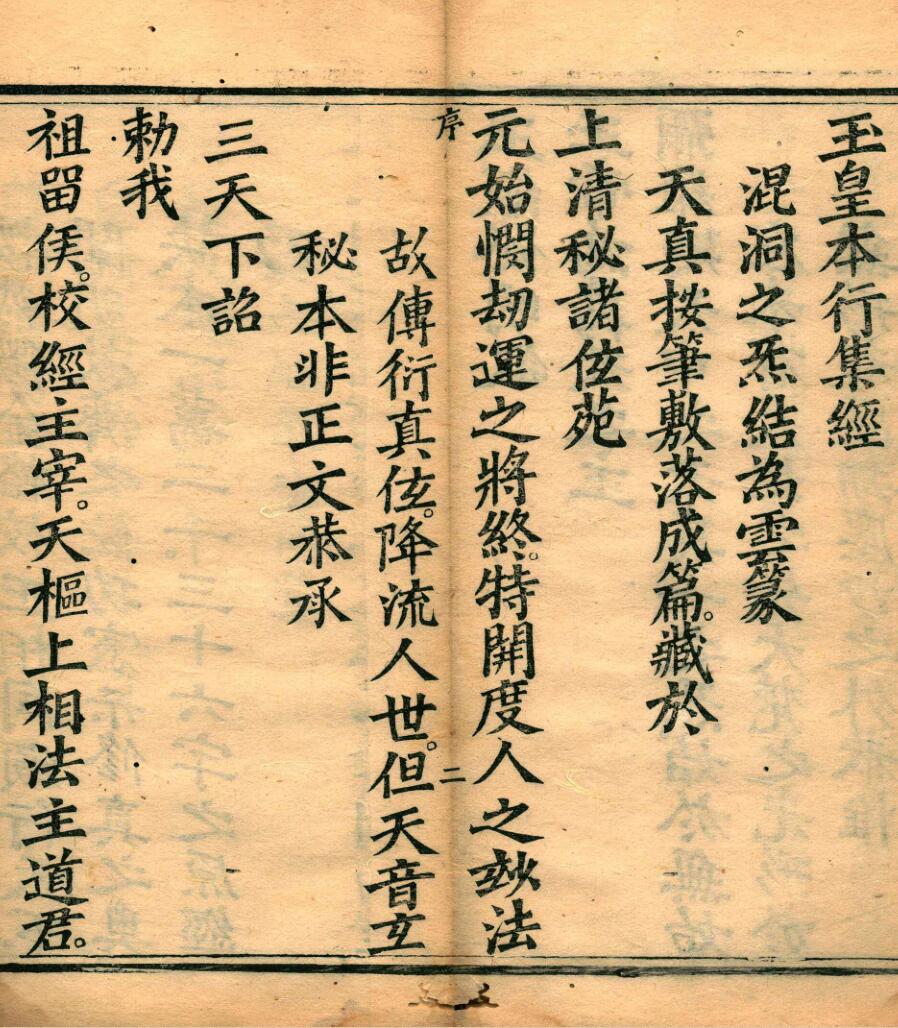 玉皇本行集經
混洞之炁結為雲篆
天真按筆敷落成篇。藏於
上清秘諸伭苑
元始憫劫運之將終。特開度人之玅法
序
二
故傳衍真伭。降流人世。但天音玄
秘本非正文恭承
三天下詔
勅我
祖畱侯。校經主宰。天樞上相法主道君。